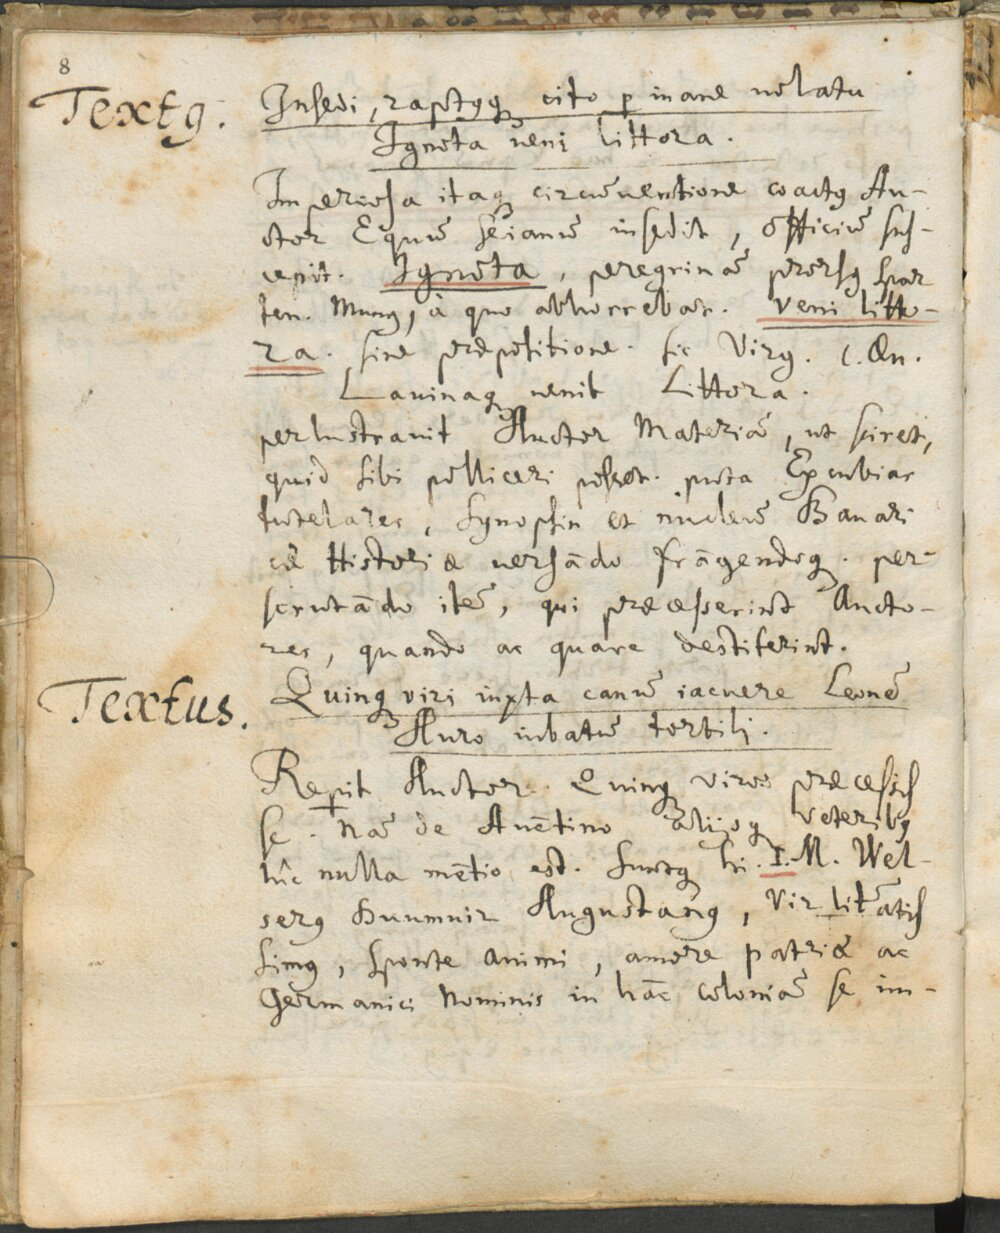 8
Textꝰ. Insedi, raptꝰq̃ cito ꝑ inane volatu
Ignota veni littora.
Imperiosa itaq̃ circũventione coactꝰ Au-
ctor Equũ Seianũ insedit, officiũ sus-
cepit. Ignota, peregrinã prorsꝰ Spar
ten. Munꝰ, à quo abhorrebat. veni litto-
ra. sine præpositione. sic Virg. 1. Æn.
Lavinaq̃ venit Littora.
perlustravit Auctor Materiã, ut sciret,
quid sibi polliceri posset. puta Excubias
tutelares, Synopsin et nucleũ Bavari
cæ Historiæ versãdo frãgendoq̃. per-
scrutãdo itẽ, qui præcesserint Aucto-
res, quando ac quare destiterint.
Textus. Quinq̃ viri iuxta canũ iacuere Leonẽ
Auro iubatũ tortili.
Reꝑit Auctor Quinq̃ viros præcessiss
se. Nã de Avẽtino aliisq̃ veteribꝰ
hîc nulla mẽtio est. Suntq̃ hi. I. M. Wel-
serꝰ Duumvir Augustanꝰ, Vir litẽratiss
simꝰ, sponte animi, amore patriæ ac
Germanici Nominis in hãc coloniã se im-